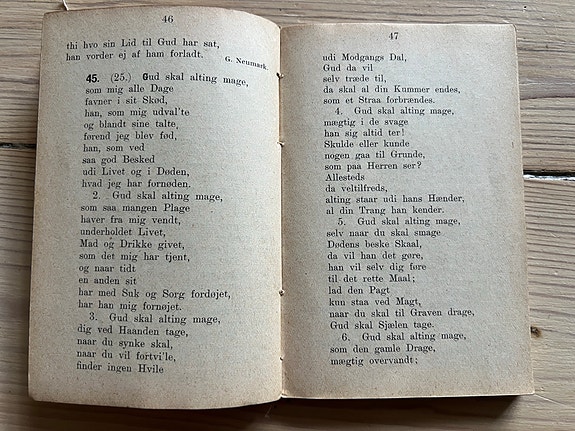 46
thi hvo sin Lid til Gud har sat,
han vorder ej af ham forladt.
G. Neumark.
45. (25.) Gud skal alting mage,
som mig alle Dage
favner i sit Skød,
han, som mig udval'te
og blandt sine talte,
førend jeg blev fød,
han, som ved
saa god Besked
udi Livet og i Døden,
hvad jeg har fornøden.
2. Gud skal alting mage,
som saa mangen Plage
haver fra mig vendt,
underholdet Livet,
Mad og Drikke givet,
som det mig har tjent,
og naar tidt
en anden sit
har med Suk og Sorg fordøjet,
har han mig fornøjet.
3. Gud skal alting mage,
dig ved Haanden tage,
naar du synke skal,
naar du vil fortvi'le,
finder ingen Hvile
47
udi Modgangs Dal,
Gud da vil
selv træde til,
da skal al din Kummer endes,
som et Straa forbrændes.
4. Gud skal alting mage,
mægtig i de svage
han sig altid ter!
Skulde eller kunde
nogen gaa til Grunde,
som paa Herren ser?
Allesteds
da veltilfreds,
alting staar udi hans Hænder,
al din Trang han kender.
5. Gud skal alting mage,
selv naar du skal smage
Dødens beske Skaal,
da vil han det gøre,
han vil selv dig føre
til det rette Maal;
lad den Pagt
kun staa ved Magt,
naar du skal til Graven drage,
Gud skal Sjælen tage.
6. Gud skal alting mage,
som den gamle Drage,
mægtig overvandt;